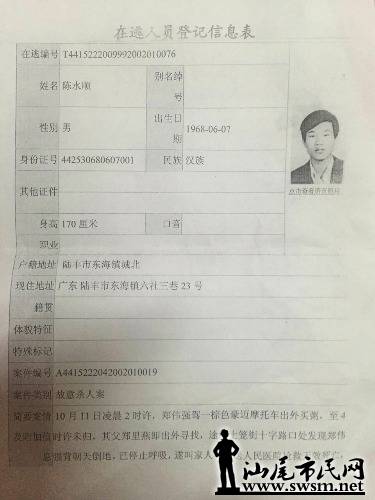 在逃人员登记信息表
在逃编号 T4415222009992002010076
姓名 陈水顺 别名绰号
性别 男 出生日期 1968-06-07
身份证号 442530680607001 民族 汉族
其他证件
点击查看原百照片
身高 170 厘米 口音
职业
户籍地址 陆丰市东海镇城北
现住地址 广东 陆丰市东海镇六社三巷 23 号
籍贯
体貌特征
特殊标记
案件编号 A4415222042002010019
案件类别 故意杀人案
简要案情 10 月 11 日凌晨 2 时许，郑伟强驾一棕色豪迈摩托车出外买粥，至 4
时许未归，其父郑里燕即出外寻找，笼街十字路口处发现郑伟
背朝天倒地，已停止呼吸，遂叫家人人民医院抢救无效死亡
汕尾市民网
www.swsm.net